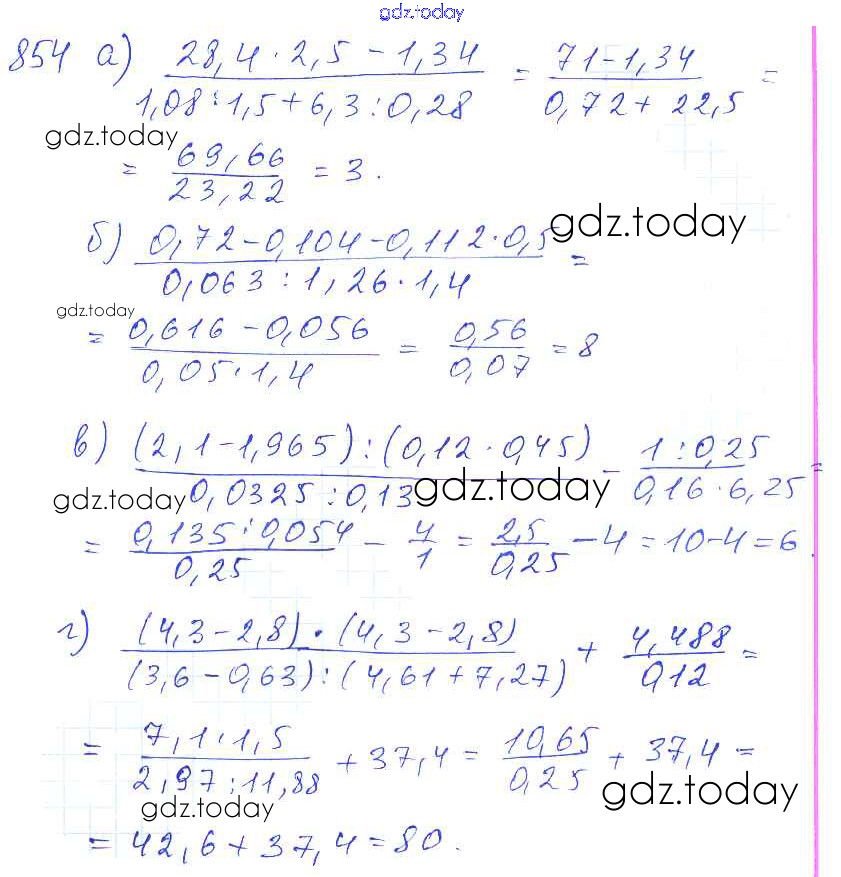 gdz.today
854 а) (28,4 · 2,5 − 1,34)/(1,08 : 1,5 + 6,3 : 0,28) = (71 − 1,34)/(0,72 + 22,5) =
gdz.today
= 69,66/23,22 = 3.
б) (0,72 − 0,104 − 0,112 · 0,5)/(0,063 : 1,26 · 1,4) =
gdz.today
gdz.today
= (0,616 − 0,056)/(0,05 · 1,4) = 0,56/0,07 = 8
в) ((2,1 − 1,965) : (0,12 · 0,45))/(0,0325 : 0,13) − (1 : 0,25)/(0,16 · 6,25) =
gdz.today
gdz.today
= (0,135 : 0,054)/0,25 − 4/1 = 2,5/0,25 − 4 = 10 − 4 = 6.
г) ((4,3 − 2,8) · (4,3 − 2,8))/((3,6 − 0,63) : (4,61 + 7,27)) + 4,488/0,12 =
= (7,1 · 1,5)/(2,97 : 11,88) + 37,4 = 10,65/0,25 + 37,4 =
gdz.today
gdz.today
= 42,6 + 37,4 = 80.